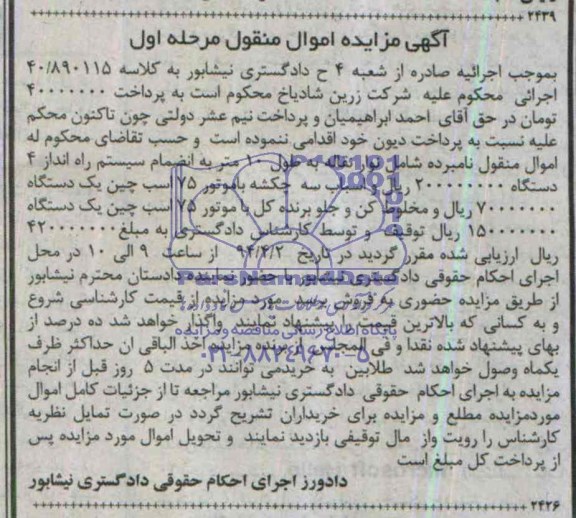 ++++++++++++++++++++++++ ۲۴۳۹
آگهی مزایده اموال منقول مرحله اول
بموجب اجرائیه صادره از شعبه ۴ ح دادگستری نیشابور به کلاسه ۴۰/۸۹۰۱۱۵
اجرائی محکوم علیه شرکت زرین شادیاخ محکوم است به پرداخت ۴۰۰۰۰۰۰۰
تومان در حق آقای احمد ابراهیمیان و پرداخت نیم عشر دولتی چون تاکنون محکم
علیه نسبت به پرداخت دیون خود اقدامی ننموده است و حسب تقاضای محکوم له
اموال منقول نامبرده شامل نوار نقاله به طول ۱۰ متر به انضمام سیستم راه انداز ۴
دستگاه ۲۰۰۰۰۰۰۰۰ ریال و آسیاب سه چکشه باموتور ۷۵ اسب چین یک دستگاه
۷۰۰۰۰۰۰۰ ریال و مخلوط کن و جلو برنده کل با موتور ۷۵ اسب چین یک دستگاه
۱۵۰۰۰۰۰۰۰ ریال توقیف و توسط کارشناس دادگستری به مبلغ ۴۲۰۰۰۰۰۰۰
ریال ارزیابی شده مقرر گردید در تاریخ ۹۴/۴/۲ از ساعت ۹ الی ۱۰ در محل
اجرای احکام حقوقی دادگستری نیشابور با حضور نماینده دادستان محترم نیشابور
از طریق مزایده حضوری به فروش برسد مورد مزایده از قیمت کارشناسی شروع
و به کسانی که بالاترین قیمت پیشنهاد نمایند واگذار خواهد شد ده درصد از
بهای پیشنهاد شده نقدا و فی المجلس از برنده مزایده اخذ الباقی ان حداکثر ظرف
یکماه وصول خواهد شد طلابین به خریدمی توانند در مدت ۵ روز قبل از انجام
مزایده به اجرای احکام حقوقی دادگستری نیشابور مراجعه تا از جزئیات کامل اموال
موردمزایده مطلع و مزایده برای خریداران تشریح گردد در صورت تمایل نظریه
کارشناس را رویت واز مال توقیفی بازدید نمایند و تحویل اموال مورد مزایده پس
از پرداخت کل مبلغ است
دادورز اجرای احکام حقوقی دادگستری نیشابور
++++++++++++++++++++++++ ۲۴۲۶
ParsNamadData
پایگاه اطلاع رسانی مناقصه و مزایده
۰۲۱-۸۸۳۴۹۶۷۰-۵